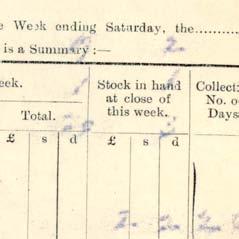 Week ending Saturday, the..........
is a Summary:—
eek.
Stock in hand
at close of
this week.
Collect:
No. o
Days
Total.
£ s d £ s d